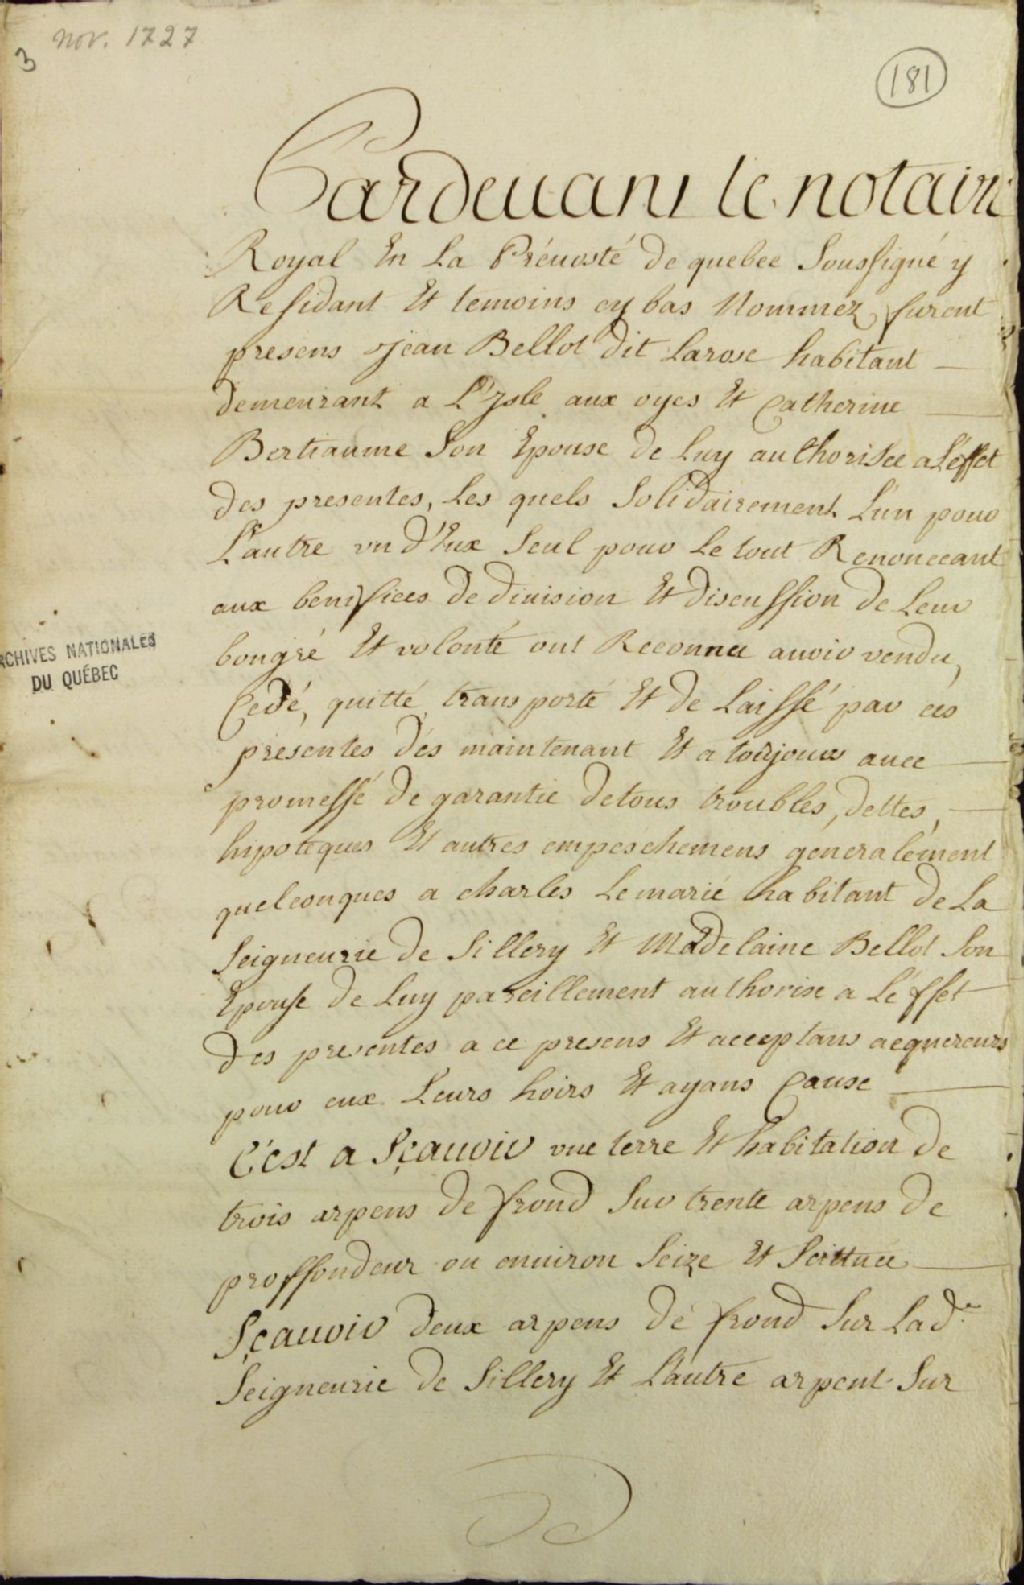 3 nov. 1727
181
Pardeuant le notaire
Royal En La Préuosté de quebec Soussigné y
Residant Et temoins cy bas Nommez, furent
presens Jean Bellot dit Larose habitant
demeurant a L'Isle aux oyes Et Catherine
Bertiaume Son Epouse de Luy authorisée a L'effet
des presentes, Les quels Solidairement L'un pour
L'autre vn d'Eux Seul pour Le tout Renonceant
aux benefices De diuision Et discussion de Leur
bongré Et volonté ont Reconnu auoir vendu,
Cedé, quitté, transporté Et de Laissé par ces
presentes dés maintenant Et a toujours auec
promesse de garantie de tous troubles, dettes,
hipoteques Et autres empeschemens generalement
quelconques a charles Le marié habitant de La
Seigneurie de Sillery Et Madelaine Bellot Son
Epouse de Luy pareillement authorisé a L'effet
des presentes a ce presens Et acceptans acquereurs
pour eux Leurs hoirs Et ayans Cause
C'est a Sçauoir vne terre Et habitation de
trois arpens de frond Sur trente arpens de
proffondeur ou enuiron Seize Et Scittuée
Sçauoir deux arpens de frond Sur Lad.e
Seigneurie de Sillery Et L'autre arpent Sur
ARCHIVES NATIONALES
DU QUÉBEC